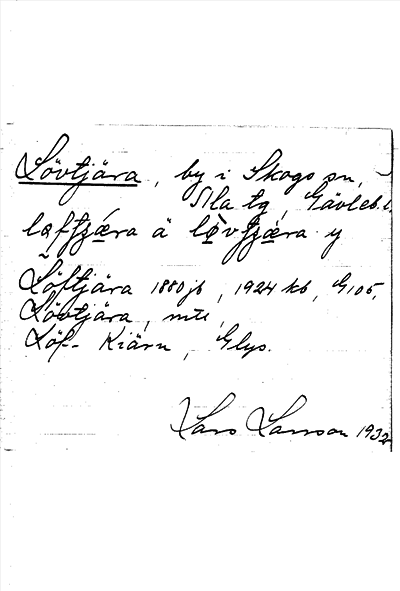 Lövtjära, by i Skogs sn,
Ala tg, Gävleb. l.
lǫftjǽra ä lǫ̀vtjǽra y
Löftjära 1880 jb, 1924 kb, G105,
Lövtjära, mtl,
Löf- Kiäru, Glys.
Lars Larsson 1932